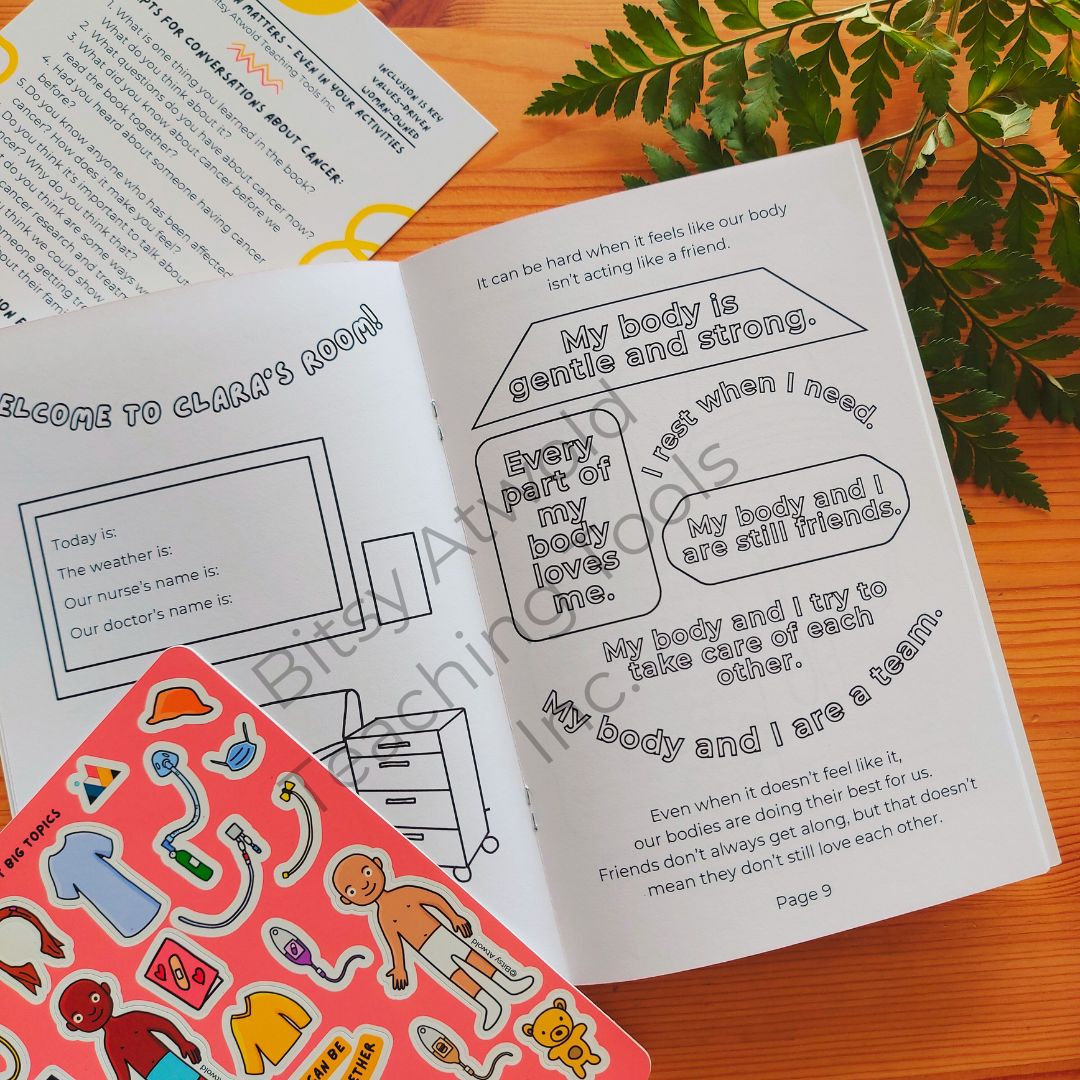 MATTERS – EVEN IN YOUR ACTIVITIES
Bitsy Atwold Teaching Tools Inc.
INCLUSION IS KEY
VALUES-DRIVEN
WOMAN-OWNED
FOR CONVERSATIONS ABOUT CANCER:
1. What is one thing you learned in the book?
What do you think about it?
2. What questions do you have about cancer, now?
3. What did you know about cancer before we
read the book together?
4. Had you heard about someone having cancer
before?
5. Do you know anyone who has been affected
cancer? How does it make you feel?
Do you think it's important to talk about
Why do you think that?
do you think are some ways
cancer research and
think we could show
someone getting
about their
WELCOME TO CLARA'S ROOM!
Today is:
The weather is:
Our nurse's name is:
Our doctor's name is:
It can be hard when it feels like our body
isn't acting like a friend.
My body is
gentle and strong.
I rest when I need.
Every
part of
my
body
loves
me.
My body and I
are still friends.
My body and I try to
take care of each
other.
My body and I are a team.
Even when it doesn't feel like it,
our bodies are doing their best for us.
Friends don't always get along, but that doesn't
mean they don't still love each other.
Page 9
Bitsy Atwold
Teaching Tools
Inc.
BIG TOPICS
©Bitsy Atwold
Atwold
CAN BE